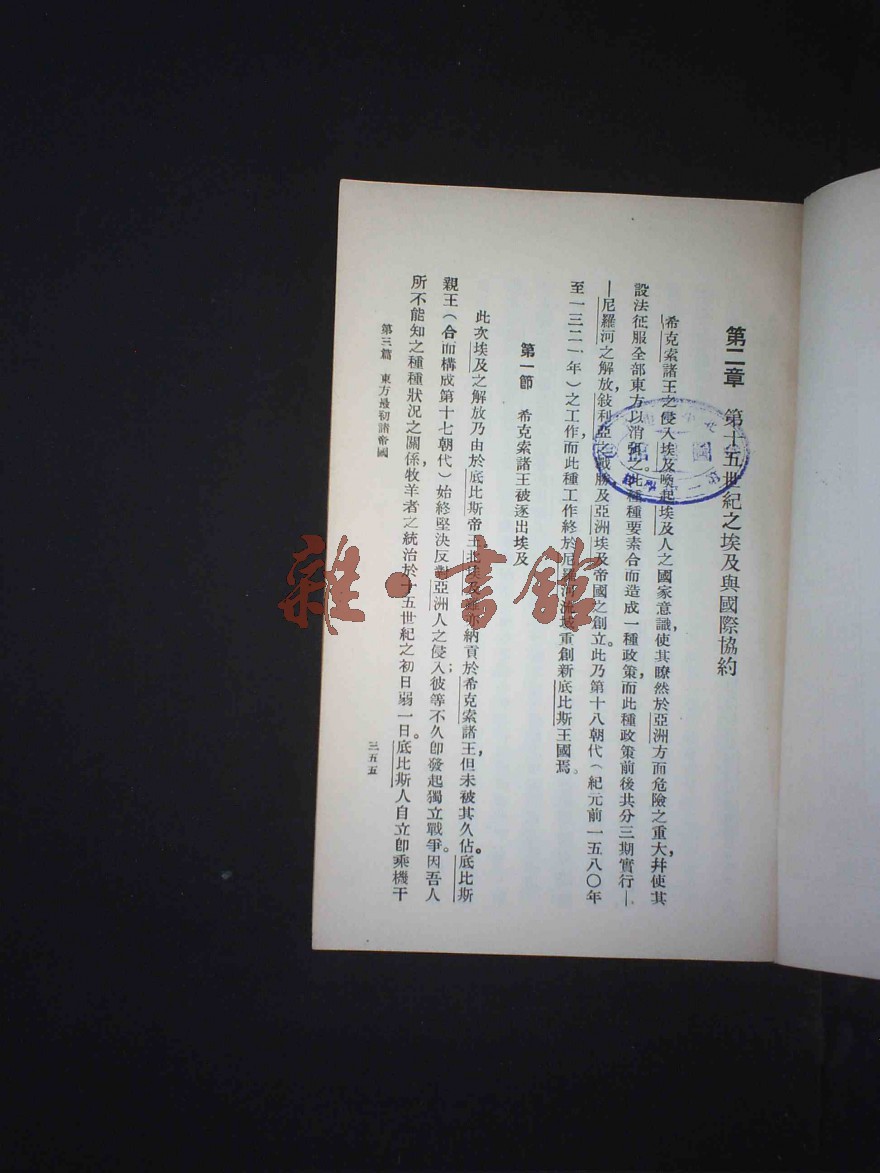 第二章　第十五世紀之埃及與國際協約
希克索諸王之侵入埃及喚起埃及人之國家意識，使其瞭然於亞洲方面危險之重大，幷使其
設法征服全部東方以消弭之。此種種要素合而造成一種政策，而此種政策前後共分三期實行—
—尼羅河之解放，敍利亞之戰勝，及亞洲埃及帝國之創立。此乃第十八朝代（紀元前一五八〇年
至一三二一年）之工作，而此種工作終於尼羅河流域重創新底比斯王國焉。
第一節　希克索諸王被逐出埃及
此次埃及之解放乃由於底比斯帝王。北埃及雖亦納貢於希克索諸王，但未被其久佔。底比斯
親王（合而構成第十七朝代）始終堅決反對亞洲人之侵入；彼等不久卽發起獨立戰爭。因吾人
所不能知之種種狀況之關係，牧羊者之統治於十五世紀之初日弱一日。底比斯人自立卽乘機干
第三篇　東方最初諸帝國
三五五
雜·書館